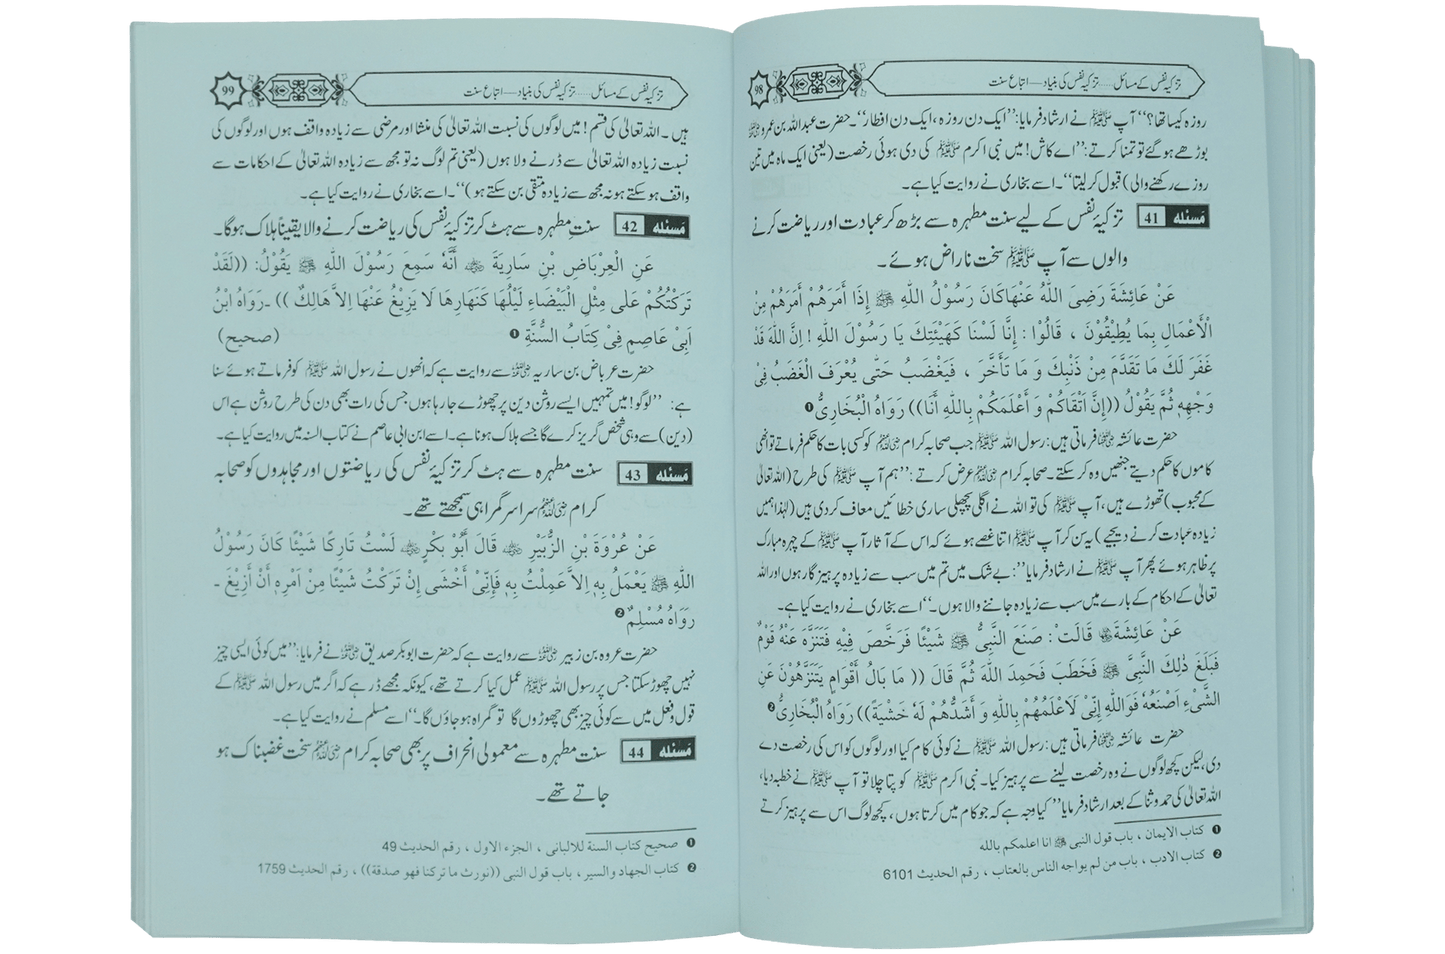 98 تزکیہ نفس کے مسائل.....تزکیہ نفس کی بنیاد—اتباع سنت
روزہ کیسا تھا؟'' آپ ﷺ نے ارشاد فرمایا:''ایک دن روزہ، ایک دن افطار''۔ حضرت عبداللہ بن عمرو
بوڑھے ہو گئے تو تمنا کرتے:''اے کاش! میں نبی اکرم ﷺ کی دی ہوئی رخصت (یعنی ایک ماہ میں تین
روزے رکھنے والی) قبول کر لیتا''۔ اسے بخاری نے روایت کیا ہے۔
مسئلہ 41 تزکیۂ نفس کے لیے سنت مطہرہ سے بڑھ کر عبادت اور ریاضت کرنے
والوں سے آپ ﷺ سخت ناراض ہوئے۔
عَنْ عَائِشَةَ رَضِىَ اللّٰهُ عَنْهَا كَانَ رَسُوْلُ اللّٰهِ ﷺ إِذَا أَمَرَهُمْ أَمَرَهُمْ مِنَ
الْأَعْمَالِ بِمَا يُطِيْقُوْنَ ، قَالُوْا : إِنَّا لَسْنَا كَهَيْئَتِكَ يَا رَسُوْلَ اللّٰهِ ! إِنَّ اللّٰهَ قَدْ
غَفَرَ لَكَ مَا تَقَدَّمَ مِنْ ذَنْبِكَ وَ مَا تَأَخَّرَ ، فَيَغْضَبُ حَتّٰى يُعْرَفَ الْغَضَبُ فِىْ
وَجْهِهٖ ثُمَّ يَقُوْلُ ((إِنَّ اَتْقَاكُمْ وَ أَعْلَمَكُمْ بِاللّٰهِ أَنَا)) رَوَاهُ الْبُخَارِىُّ❶
حضرت عائشہ فرماتی ہیں: رسول اللہ ﷺ جب صحابہ کرام کو کسی بات کا حکم فرماتے تو انھی
کاموں کا حکم دیتے جنھیں وہ کر سکتے۔ صحابہ کرام عرض کرتے:''ہم آپ ﷺ کی طرح (اللہ تعالیٰ
کے محبوب) تھوڑے ہیں، آپ ﷺ کی تو اللہ نے اگلی پچھلی ساری خطائیں معاف کر دی ہیں (لہٰذا ہمیں
زیادہ عبادت کرنے دیجیے) یہ سن کر آپ ﷺ اتنا غصے ہوئے کہ اس کے آثار آپ ﷺ کے چہرہ مبارک
پر ظاہر ہوئے پھر آپ ﷺ نے ارشاد فرمایا:''بے شک میں تم میں سب سے زیادہ پرہیز گار ہوں اور اللہ
تعالیٰ کے احکام کے بارے میں سب سے زیادہ جاننے والا ہوں۔'' اسے بخاری نے روایت کیا ہے۔
عَنْ عَائِشَةَ قَالَتْ: صَنَعَ النَّبِىُّ ﷺ شَيْئًا فَرَخَّصَ فِيْهِ فَتَنَزَّهَ عَنْهُ قَوْمٌ
فَبَلَغَ ذٰلِكَ النَّبِىَّ ﷺ فَخَطَبَ فَحَمِدَ اللّٰهَ ثُمَّ قَالَ (( مَا بَالُ أَقْوَامٍ يَتَنَزَّهُوْنَ عَنِ
الشَّىْءِ اَصْنَعُهٗ فَوَاللّٰهِ اِنِّىْ لَأَعْلَمُهُمْ بِاللّٰهِ وَ أَشَدُّهُمْ لَهٗ خَشْيَةً)) رَوَاهُ الْبُخَارِىُّ❷
حضرت عائشہ فرماتی ہیں: رسول اللہ ﷺ نے کوئی کام کیا اور لوگوں کو اس کی رخصت دے
دی، لیکن کچھ لوگوں نے وہ رخصت لینے سے پرہیز کیا۔ نبی اکرم ﷺ کو پتا چلا تو آپ ﷺ نے خطبہ دیا،
اللہ تعالیٰ کی حمد و ثنا کے بعد ارشاد فرمایا''کیا وجہ ہے کہ جو کام میں کرتا ہوں، کچھ لوگ اس سے پرہیز کرتے
❶ کتاب الایمان ، باب قول النبی ﷺ انا اعلمکم بالله
❷ کتاب الادب ، باب من لم یواجه الناس بالعتاب ، رقم الحدیث 6101
99 تزکیہ نفس کے مسائل.....تزکیہ نفس کی بنیاد—اتباع سنت
ہیں۔ اللہ تعالیٰ کی قسم! میں لوگوں کی نسبت اللہ تعالیٰ کی منشا اور مرضی سے زیادہ واقف ہوں اور لوگوں کی
نسبت زیادہ اللہ تعالیٰ سے ڈرنے والا ہوں (یعنی تم لوگ نہ تو مجھ سے زیادہ اللہ تعالیٰ کے احکامات سے
واقف ہو سکتے ہو نہ مجھ سے زیادہ متقی بن سکتے ہو)''۔ اسے بخاری نے روایت کیا ہے۔
مسئلہ 42 سنتِ مطہرہ سے ہٹ کر تزکیۂ نفس کی ریاضت کرنے والا یقیناً ہلاک ہوگا۔
عَنِ الْعِرْبَاضِ بْنِ سَارِيَةَ أَنَّهٗ سَمِعَ رَسُوْلَ اللّٰهِ ﷺ يَقُوْلُ: ((لَقَدْ
تَرَكْتُكُمْ عَلٰى مِثْلِ الْبَيْضَاءِ لَيْلُهَا كَنَهَارِهَا لَا يَزِيْغُ عَنْهَا اِلَّا هَالِكٌ )) ۔رَوَاهُ ابْنُ
اَبِىْ عَاصِمٍ فِىْ كِتَابُ السُّنَّةِ ❶ (صحيح)
حضرت عرباض بن ساریہ سے روایت ہے کہ انھوں نے رسول اللہ ﷺ کو فرماتے ہوئے سنا
ہے: ''لوگو! میں تمہیں ایسے روشن دین پر چھوڑے جا رہا ہوں جس کی رات بھی دن کی طرح روشن ہے اس
(دین) سے وہی شخص گریز کرے گا جسے ہلاک ہونا ہے۔ اسے ابن ابی عاصم نے کتاب السنہ میں روایت کیا ہے۔
مسئلہ 43 سنت مطہرہ سے ہٹ کر تزکیۂ نفس کی ریاضتوں اور مجاہدوں کو صحابہ
کرام سراسر گمراہی سمجھتے تھے۔
عَنْ عُرْوَةَ بْنِ الزُّبَيْرِ قَالَ أَبُوْ بَكْرٍ لَسْتُ تَارِكًا شَيْئًا كَانَ رَسُوْلُ
اللّٰهِ ﷺ يَعْمَلُ بِهٖ اِلَّا عَمِلْتُ بِهٖ فَإِنِّىْ أَخْشٰى إِنْ تَرَكْتُ شَيْئًا مِنْ اَمْرِهٖ أَنْ أَزِيْغَ ۔
رَوَاهُ مُسْلِمٌ❷
حضرت عروہ بن زبیر سے روایت ہے کہ حضرت ابوبکر صدیق نے فرمایا:''میں کوئی ایسی چیز
نہیں چھوڑ سکتا جس پر رسول اللہ ﷺ عمل کیا کرتے تھے، کیونکہ مجھے ڈر ہے کہ اگر میں رسول اللہ ﷺ کے
قول و فعل میں سے کوئی چیز بھی چھوڑوں گا تو گمراہ ہو جاؤں گا۔'' اسے مسلم نے روایت کیا ہے۔
مسئلہ 44 سنت مطہرہ سے معمولی انحراف پر بھی صحابہ کرام سخت غضبناک ہو
جاتے تھے۔
❶ صحیح کتاب السنة للالبانی ، الجزء الاول ، رقم الحدیث 49
❷ کتاب الجهاد والسیر ، باب قول النبی ((نورث ما ترکنا فهو صدقة)) ، رقم الحدیث 1759